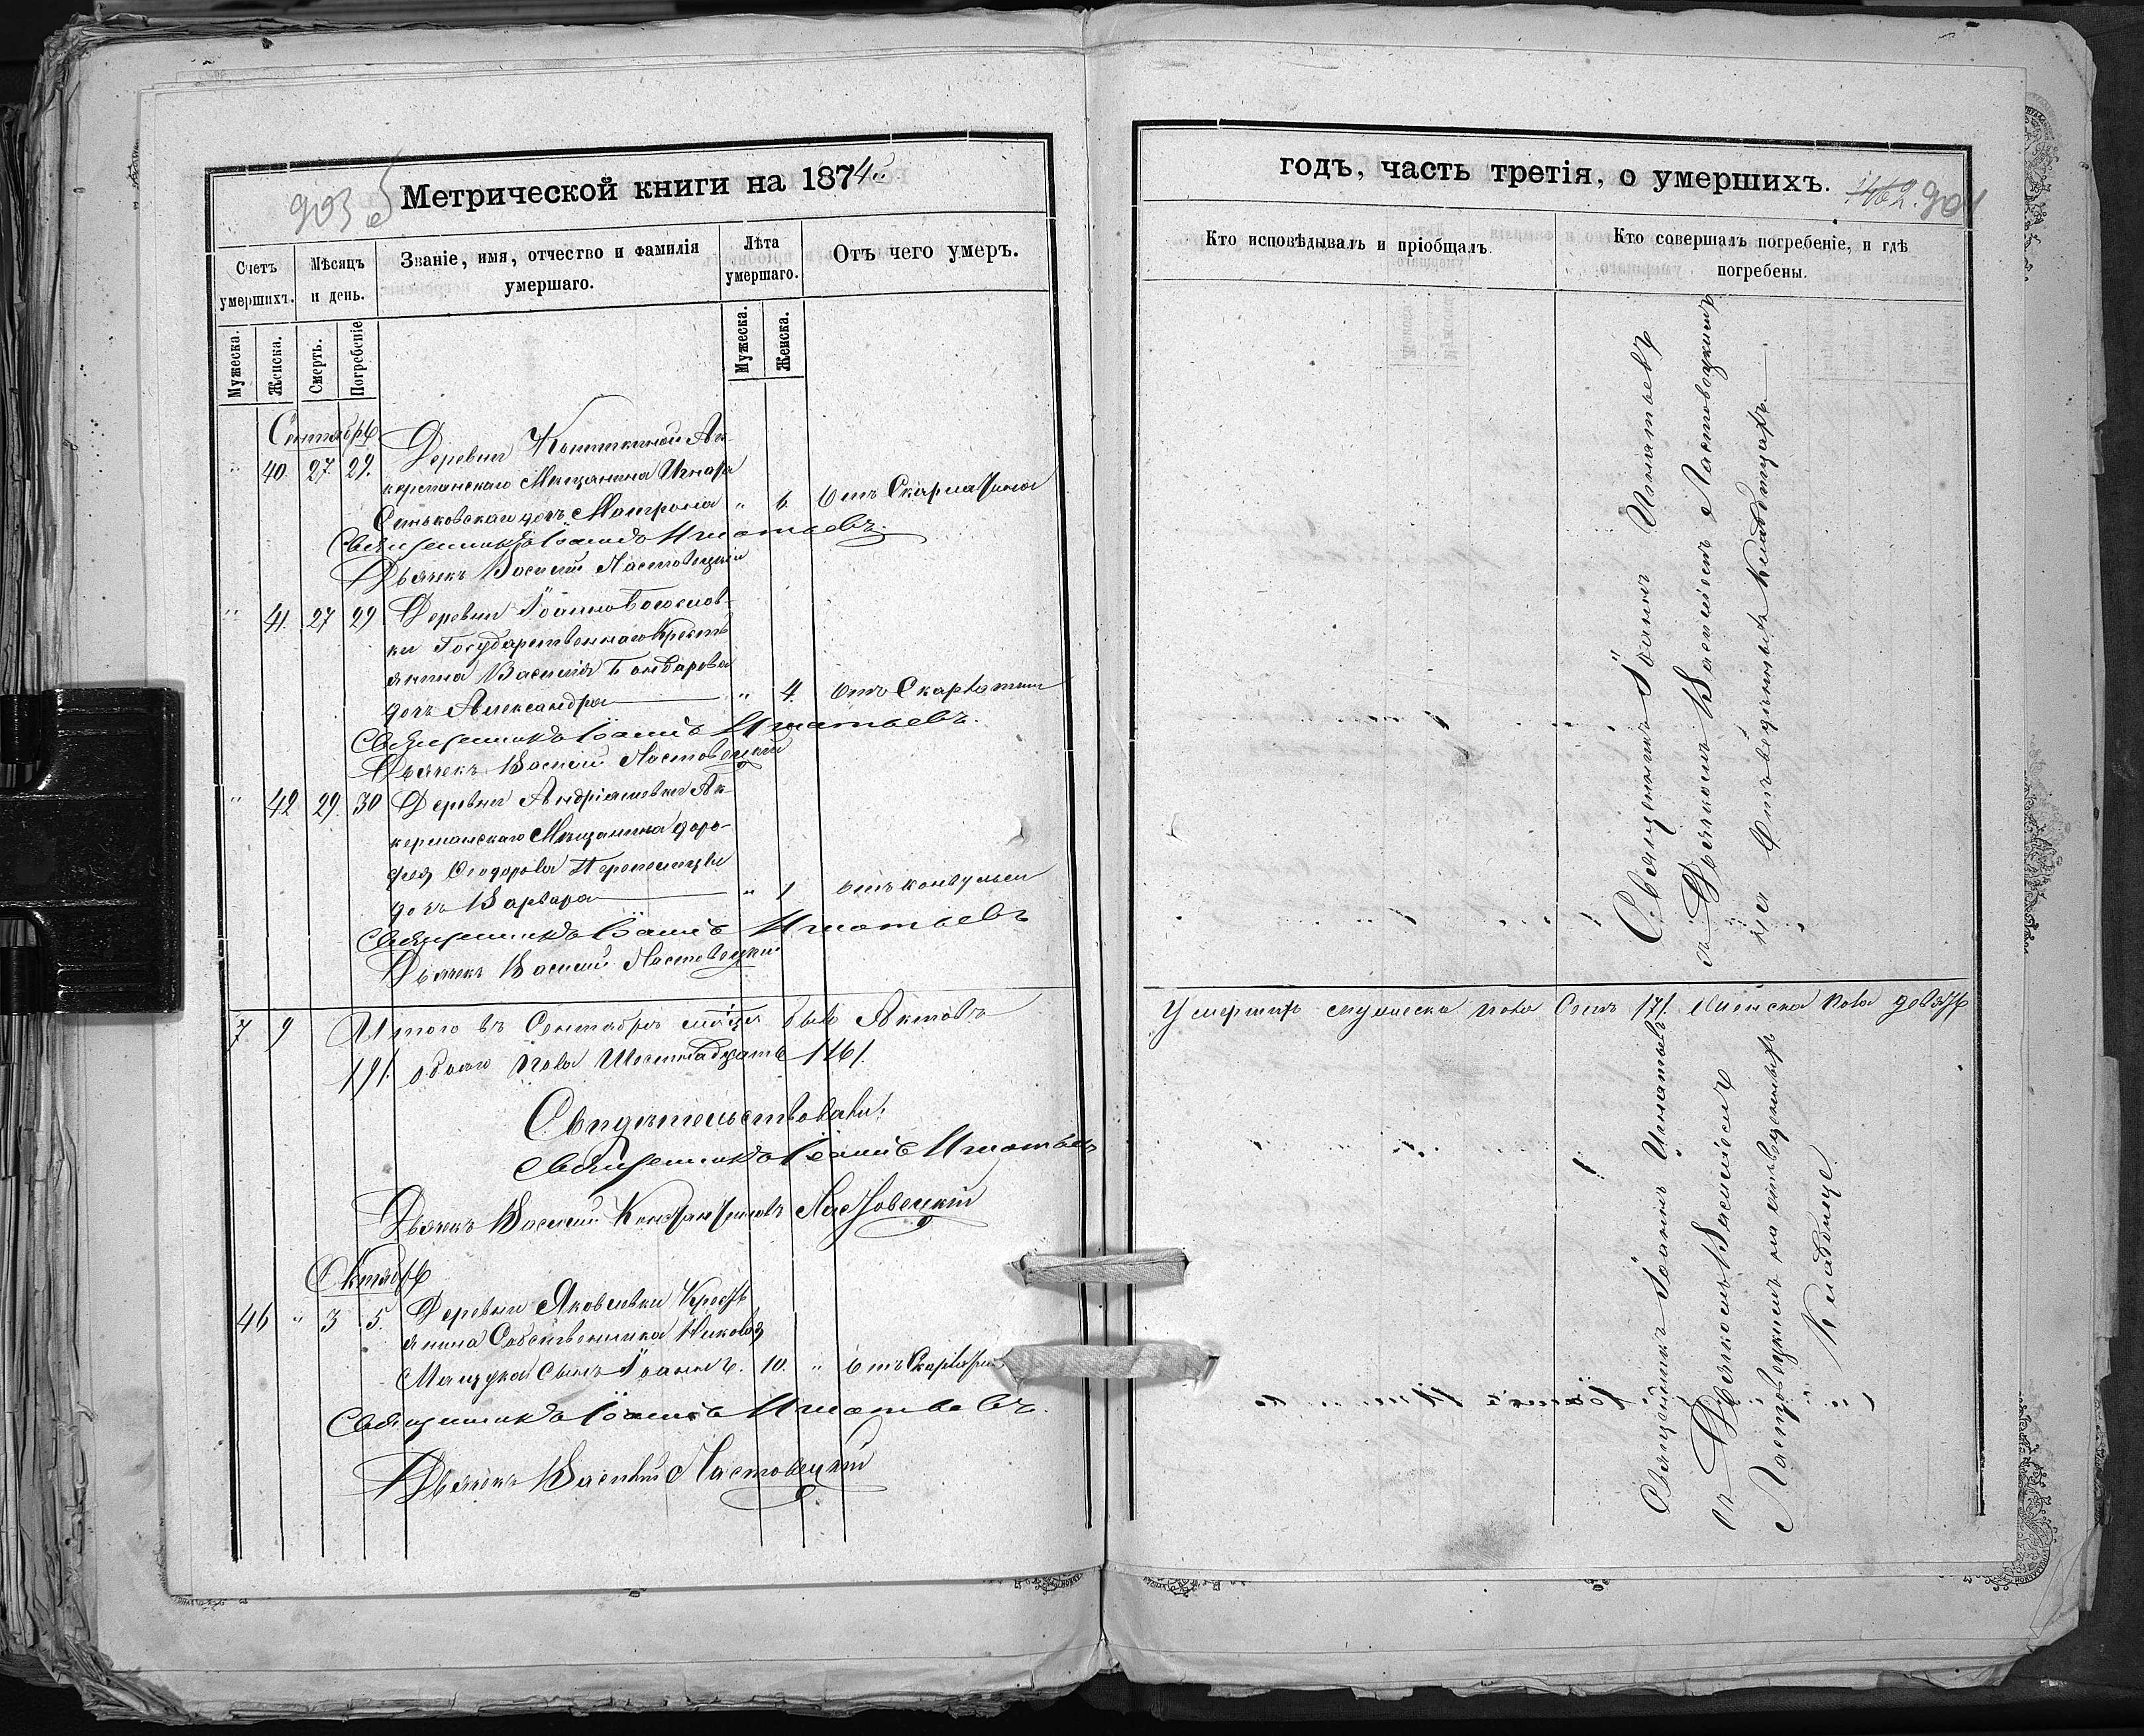 903 об
Метрической книги на 1874й
Счетъ умершихъ.
Мѣсяцъ и день.
Званіе, имя, отчество и фамилія умершаго.
Лѣта умершаго.
Отъ чего умеръ.
Мужеска.
Женска.
Смерть.
Погребеніе
Мужеска.
Женска.
Сентябрь
Деревни
Ак-
" 40. 27 29. керманскаго Мѣщанина
дочь " 6 Отъ
Священникъ Іоаннъ Игнатьевъ.
Дьячекъ Василій Ластовецкій
" 41. 27 29 Деревни Іоанно Богослов-
ки Государственнаго Кресть
янина Василія Бондарева
дочь Александра " 4 Отъ Скарлатины
Священникъ Іоаннъ Игнатьевъ.
Дьячекъ Василій Ластовецкій
" 42 29. 30 Деревни Андріяшевки Ак-
керманскаго Мѣщанина Доро-
фея Ѳеодорова
дочь Варвара " 1 отъ конвульсіи
Священникъ Іоаннъ Игнатьевъ
Дьячекъ Василій Ластовецкій
7 9 Итого въ Сентябрѣ мѣсяцѣ было Актовъ
/9/. обоего пола Шестнадцать /16/.
Свидѣтельствовали:
Священникъ Іоаннъ Игнатьевъ
Дьячекъ Василій Константиновъ Ластовецкій
Октябрь
Деревни Яковлевки Кресть
46 " 3 5. янина Собственника Николая
сынъ Іоаннъ. 10. " Отъ Скарлатины
Священникъ Іоаннъ Игнатьевъ.
Дьячекъ Василій Ластовецкій
годъ, часть третія, о умершихъ.
1462. 904
Кто исповѣдывалъ и пріобщалъ.
Кто совершалъ погребеніе, и гдѣ
погребены.
Священникъ Іоаннъ Игнатьевъ
съ Дьячкомъ Василіемъ Ластовецкимъ
на Отъведенныхъ Кладбищахъ
Умершихъ мужеска пола Семь /7/. женска пола девять
Священникъ Іоаннъ Игнатьевъ
съ Дьячкомъ Василіемъ
Ластовецкимъ на отъведенномъ
Кладбище.